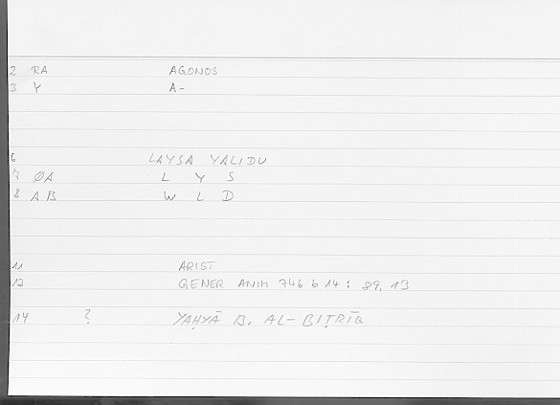 2 RA AGONOS
3 Y A-
6 LAYSA YALIDU
7 ØA L Y S
8 AB W L D
11 ARIST
12 GENER ANIM 746 b 14 : 89, 13
14 ? YAḤYĀ B. AL-BIṬRĪQ